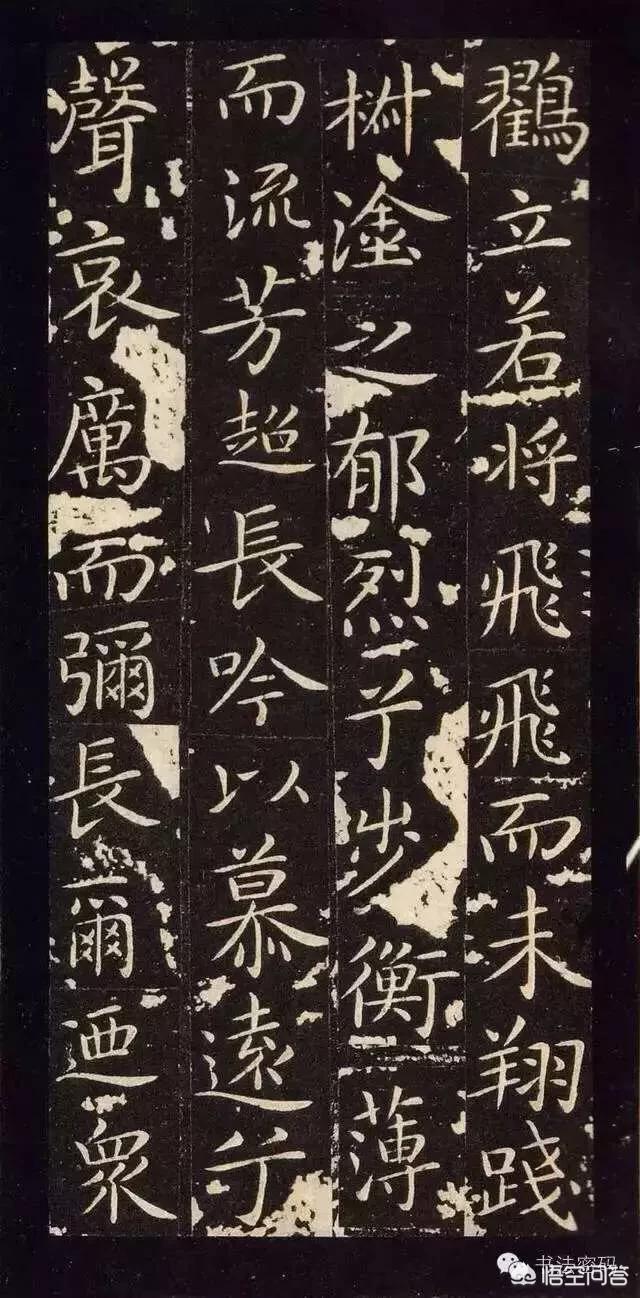 鶴立若将飛飛而未翔踐
椒塗之郁烈兮步衡薄
而流芳超長吟以慕遠兮
聲哀厲而彌長爾迺衆
书法密码
悟空问答